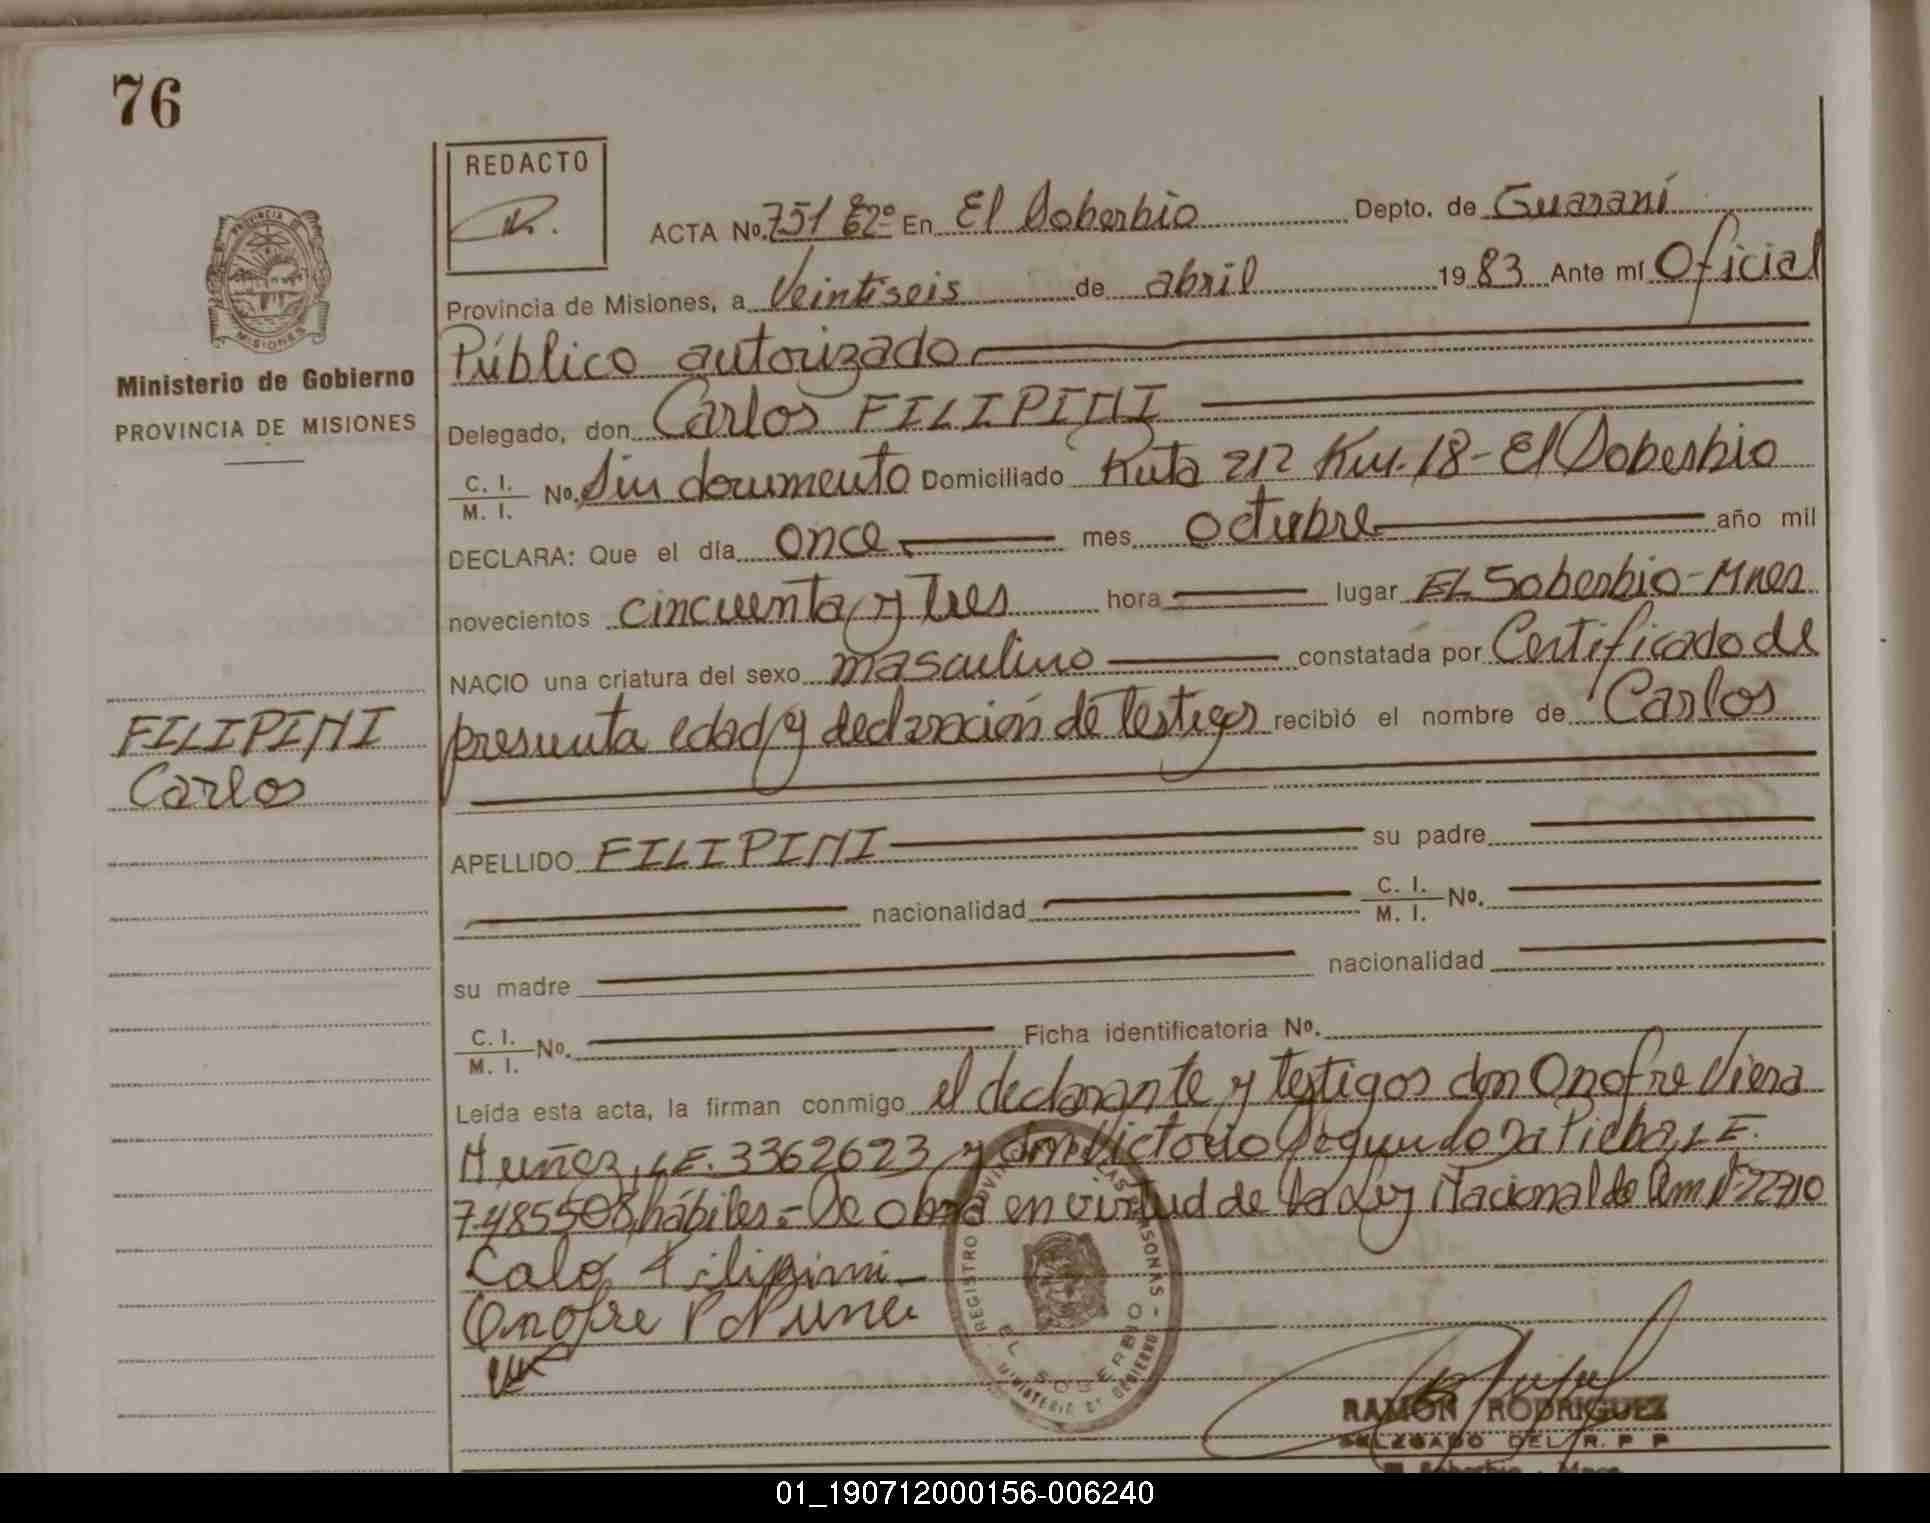 76
REDACTO
ACTA No. 751 En El Soberbio Depto. de Guaraní
Provincia de Misiones, a Veintiseis de abril 1983 Ante mí Oficial
Público autorizado
Ministerio de Gobierno
PROVINCIA DE MISIONES
Delegado, don Carlos FILIPINI
C. I. / M. I. No. Sin documento Domiciliado Ruta 212 Km. 18 - El Soberbio
DECLARA: Que el día once mes octubre año mil
novecientos cincuenta y tres hora lugar EL Soberbio - Mnes
NACIO una criatura del sexo masculino constatada por Certificado de
FILIPINI
Carlos
presunta edad y declaración de testigos recibió el nombre de Carlos
APELLIDO FILIPINI su padre
nacionalidad C. I. / M. I. No.
su madre nacionalidad
C. I. / M. I. No. Ficha identificatoria No.
Leída esta acta, la firman conmigo el declarante y testigos don Onofre Viera
Nuñez, L.E. 3362623 y don Victorio Segundo L.E.
7.485508, hábiles.- Se obra en virtud de la Ley Nacional de
Calo Filipini
Onofre V Nunez
REGISTRO PROVINCIAL DE LAS PERSONAS
EL SOBERBIO
MINISTERIO DE GOBIERNO
RAMON RODRIGUEZ
DELEGADO DEL R. P. P
El Soberbio - Mnes
01_190712000156-006240